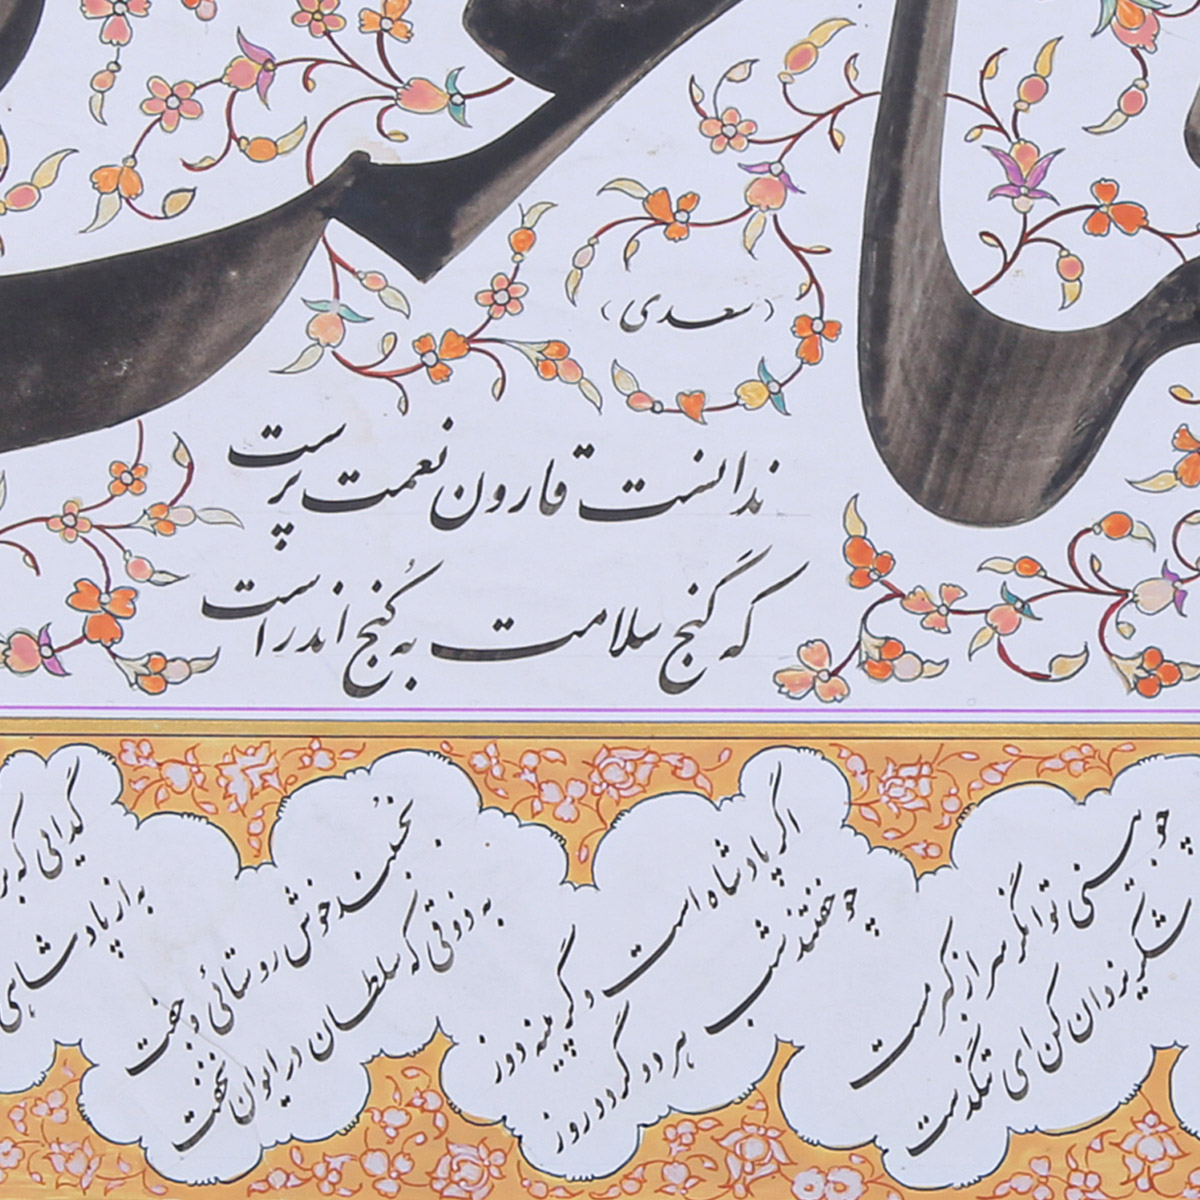 (سعدی)
ندانست قارون نعمت پرست
که گنج سلامت به کُنج اندر است
چو بینی توانگر سر از کبر مست
شکر یزدان کن ای تنگدست
اگر پادشاه است و گر پینه دوز
چو خفتند شب هر دو گردد روز
بخُسبند خوش روستائی و جفت
به ذوقی که سلطان در ایوان نخفت
گدایی که بر
به از پادشاهی